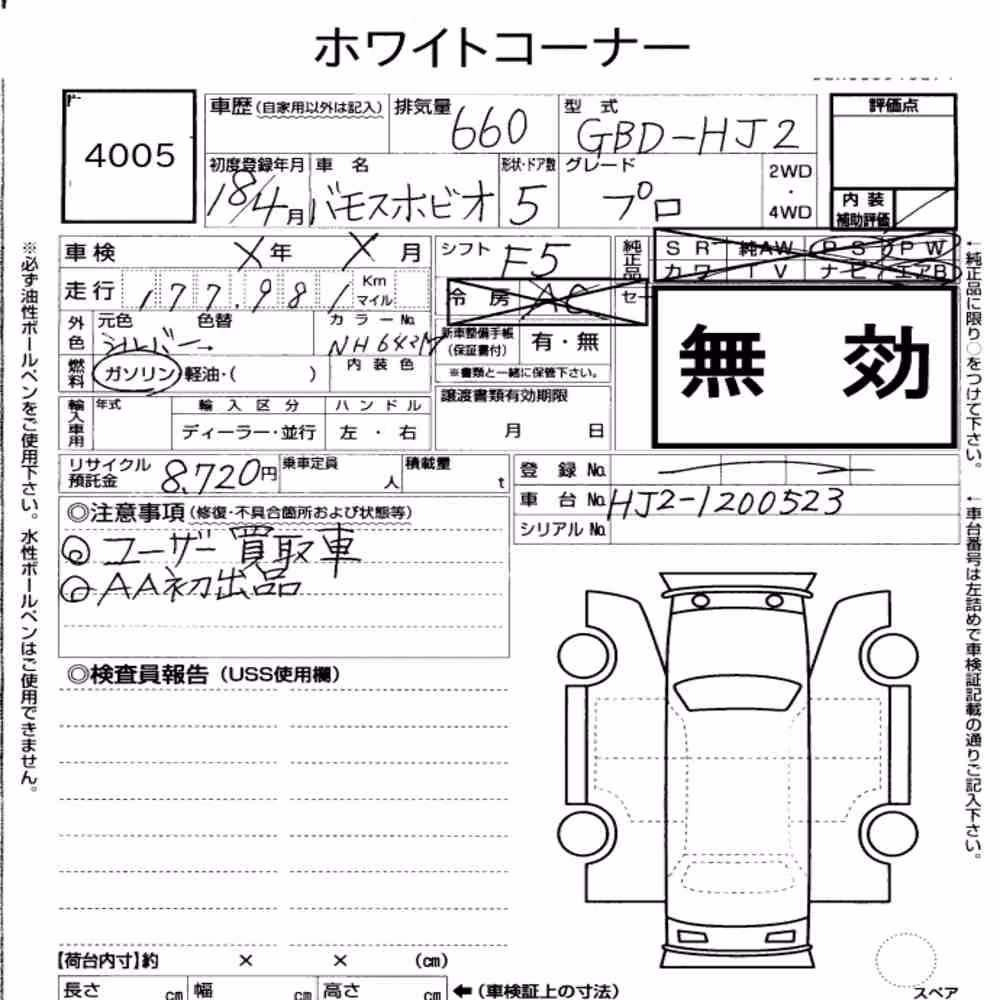 ホワイトコーナー
4005
車歴(自家用以外は記入)
排気量 660
型 式 GBD-HJ2
評価点
初度登録年月 18/4月
車 名 バモスホビオ
形状・ドア数 5
グレード プロ
2WD
・
4WD
内 装
補助評価
車検 X年 X月
シフト F5
純正品
SR 純AW PS PW
カワ TV ナビ エアB
走行 177.981 Km マイル
冷 房 AC
セー
無 効
外色 元色 シルバー → 色替
カラーNo. NH642M
新車整備手帳
(保証書付)
有・無
※書類と一緒に保管下さい。
燃料 ガソリン・軽油・( )
内 装 色
譲渡書類有効期限
月 日
輸入車用 年式
輸 入 区 分
ディーラー・並行
ハ ン ド ル
左 ・ 右
リサイクル
預託金 8,720円
乗車定員 人
積載量 t
登 録 No.
車 台 No. HJ2-1200523
シリアル No.
◎注意事項(修復・不具合箇所および状態等)
◎ユーザー買取車
◎AA初出品
◎検査員報告(USS使用欄)
【荷台内寸】約 × × (cm)
長さ cm 幅 cm 高さ cm ←(車検証上の寸法)
スペア
※必ず油性ボールペンをご使用下さい。水性ボールペンはご使用できません。
←純正品に限り○をつけて下さい。
←車台番号は左詰めで車検証記載の通りご記入下さい。